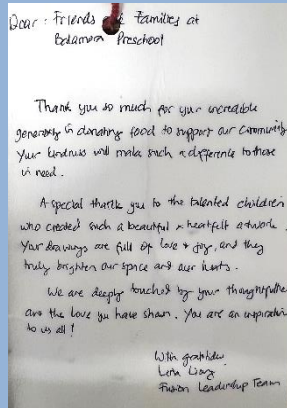 Dear : Friends & Families at
Preschool
Thank you so much for your incredible
generosity in donating food to support our Community
Your kindness will make such a difference to those
in need.
A special thank you to the talented children
who created such a beautiful & heartfelt artwork.
Your drawings are full of love & joy, and they
truly brighten our space and our hearts.
We are deeply touched by your
and the love you have shown. You are an inspiration
to us all!
With gratitude,
Fusion Leadership Team